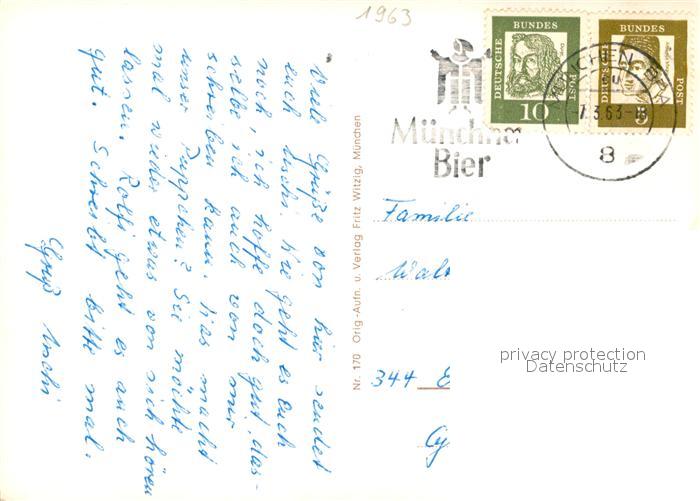 1963
DEUTSCHE
BUNDES
POST
10
DEUTSCHE
BUNDES
POST
8
MÜNCHEN
-7.3.63-
8
Münchner
Bier
Viele Grüße von hier sendet
euch Uschi. Wie geht es euch
noch, ich hoffe doch gut, das-
selbe ich auch von mir
schreiben kann. Was macht
unser Puppchen? Sie möchte
mal wieder etwas von sich hören
lassen. Rolfi geht es auch
gut. Schreibt bitte mal.
Gruß Uschi
Nr. 170 Orig-Aufn. u. Verlag Fritz Witzig, München
Familie
Wal
344 E
privacy protection
Datenschutz